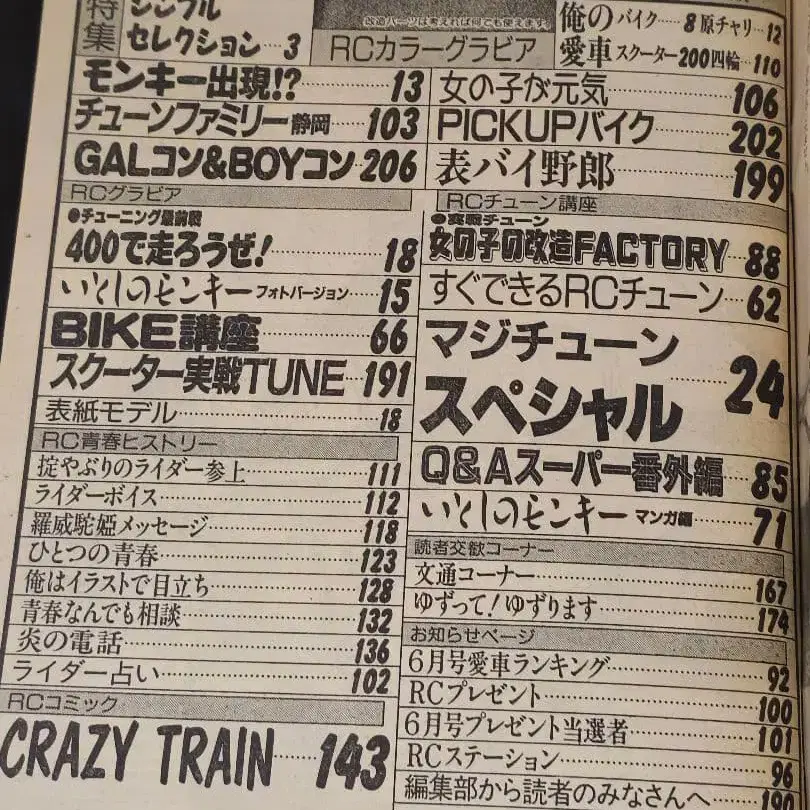 特集
シングル
セレクション…3
改造パーツは考えれば何でも使えます。
RCカラーグラビア
俺の愛車
バイク……8
原チャリ…12
スクーター200
四輪…110
モンキー出現!?……………13
チューンファミリー静岡……103
GALコン&BOYコン…206
女の子が元気……………106
PICKUPバイク…………202
表バイ野郎………………199
RCグラビア
●チューニング最前戦
400で走ろうぜ!……………18
いとしのモンキーフォトバージョン……15
BIKE講座……………66
スクーター実戦TUNE……191
表紙モデル……………18
RC青春ヒストリー
掟やぶりのライダー参上……………111
ライダーボイス……………112
羅威駝婭メッセージ……………118
ひとつの青春……………123
俺はイラストで目立ち……………128
青春なんでも相談……………132
炎の電話……………136
ライダー占い……………102
RCコミック
CRAZY TRAIN……143
RCチューン講座
●実戦チューン
女の子の改造FACTORY…88
すぐできるRCチューン…62
マジチューン
スペシャル……24
Q&Aスーパー番外編……85
いとしのモンキーマンガ編……71
読者交歓コーナー
文通コーナー……………167
ゆずって!ゆずります……………174
お知らせページ
6月号愛車ランキング……………92
RCプレゼント……………100
6月号プレゼント当選者……………101
RCステーション……………96
編集部から読者のみなさんへ…190